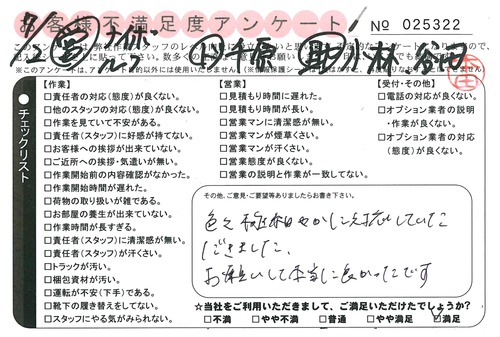 お客様不満足度アンケート
No 025322
このアンケートは弊社作業スタッフのレベル向上
※このアンケートは、アンケート目的以外には使用いたしません。
チェックリスト
【作業】
□責任者の対応(態度)が良くない。
□他のスタッフの対応(態度)が良くない。
□作業を見ていて不安がある。
□責任者(スタッフ)に好感が持てない。
□お客様への挨拶が出来ていない。
□ご近所への挨拶・気遣いが無い。
□作業開始前の内容確認がなかった。
□作業開始時間が遅れた。
□荷物の取り扱いが雑である。
□お部屋の養生が出来ていない。
□作業時間が長すぎる。
□責任者(スタッフ)に清潔感が無い。
□責任者(スタッフ)が汗くさい。
□トラックが汚い。
□梱包資材が汚い。
□運転が不安(下手)である。
□靴下の履き替えをしてない。
□スタッフにやる気がみられない。
【営業】
□見積もり時間に遅れた。
□見積もり時間が長い。
□営業マンに清潔感が無い。
□営業マンが煙草くさい。
□営業マンが汗くさい。
□営業態度が良くない。
□営業の説明と作業が一致してない。
【受付・その他】
□電話の対応が良くない。
□オプション業者の説明
・作業が良くない。
□オプション業者の対応
(態度)が良くない。
その他、ご意見・ご要望等ありましたらお書き下さい。
色々 にこやかに対応していた
だきました。
お願いして本当に良かったです
☆当社をご利用いただきまして、ご満足いただけたでしょうか?
□不満 □やや不満 □普通 □やや満足 □満足